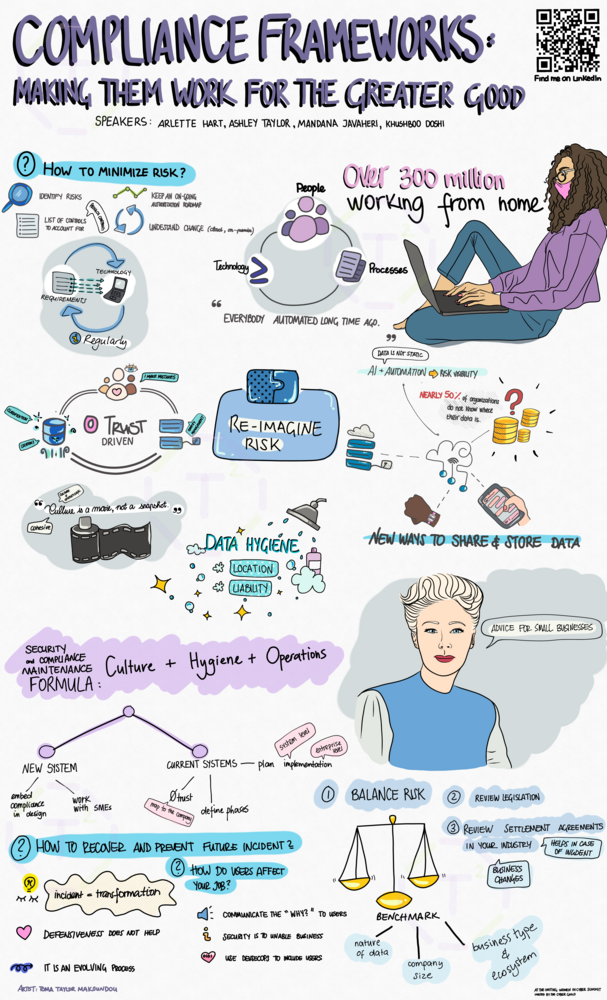 COMPLIANCE FRAMEWORKS:
MAKING THEM WORK FOR THE GREATER GOOD
SPEAKERS: ARLETTE HART, ASHLEY TAYLOR, MANDANA JAVAHERI, KHUSHBOO DOSHI
Find me on LinkedIn
? HOW TO MINIMIZE RISK?
IDENTIFY RISKS
KEEP AN ON-GOING
AUTHORIZATION ROADMAP
LIST OF CONTROLS
TO ACCOUNT FOR
UNDERSTAND CHANGE (cloud, on-premise)
TECHNOLOGY
REQUIREMENTS
Regularly
People
Technology
Processes
" EVERYBODY AUTOMATED LONG TIME AGO. "
Over 300 million
working from home
TRUST
DRIVEN
I MAKE MISTAKES
RE-IMAGINE
RISK
DATA IS NOT STATIC
AI + AUTOMATION ⇒ RISK VISIBILITY
NEARLY 50% of organizations
do not know where
their data is.
?
NEW WAYS TO SHARE & STORE DATA
" Culture is a movie, not a snapshot. "
cohesive
DATA HYGIENE
LOCATION
LIABILITY
ADVICE FOR SMALL BUSINESSES
SECURITY
and COMPLIANCE
MAINTENANCE
FORMULA:
Culture + Hygiene + Operations
NEW SYSTEM
embed
compliance
in design
WORK
with SMEs
CURRENT SYSTEMS — plan implementation
system level
enterprise
level
Ø trust
map to the company
define phases
1 BALANCE RISK
2 REVIEW LEGISLATION
3 REVIEW SETTLEMENT AGREEMENTS
IN YOUR INDUSTRY
HELPS IN CASE
OF INCIDENT
BUSINESS
CHANGES
BENCHMARK
nature
of data
company
size
business type
& ecosystem
? HOW TO RECOVER AND PREVENT FUTURE INCIDENT?
incident = transformation
DEFENSIVENESS DOES NOT HELP
IT IS AN EVOLVING PROCESS
? HOW DO USERS AFFECT
YOUR JOB?
COMMUNICATE THE "WHY?" TO USERS
SECURITY IS TO UNABLE BUSINESS
USE DEVSECOPS TO INCLUDE USERS